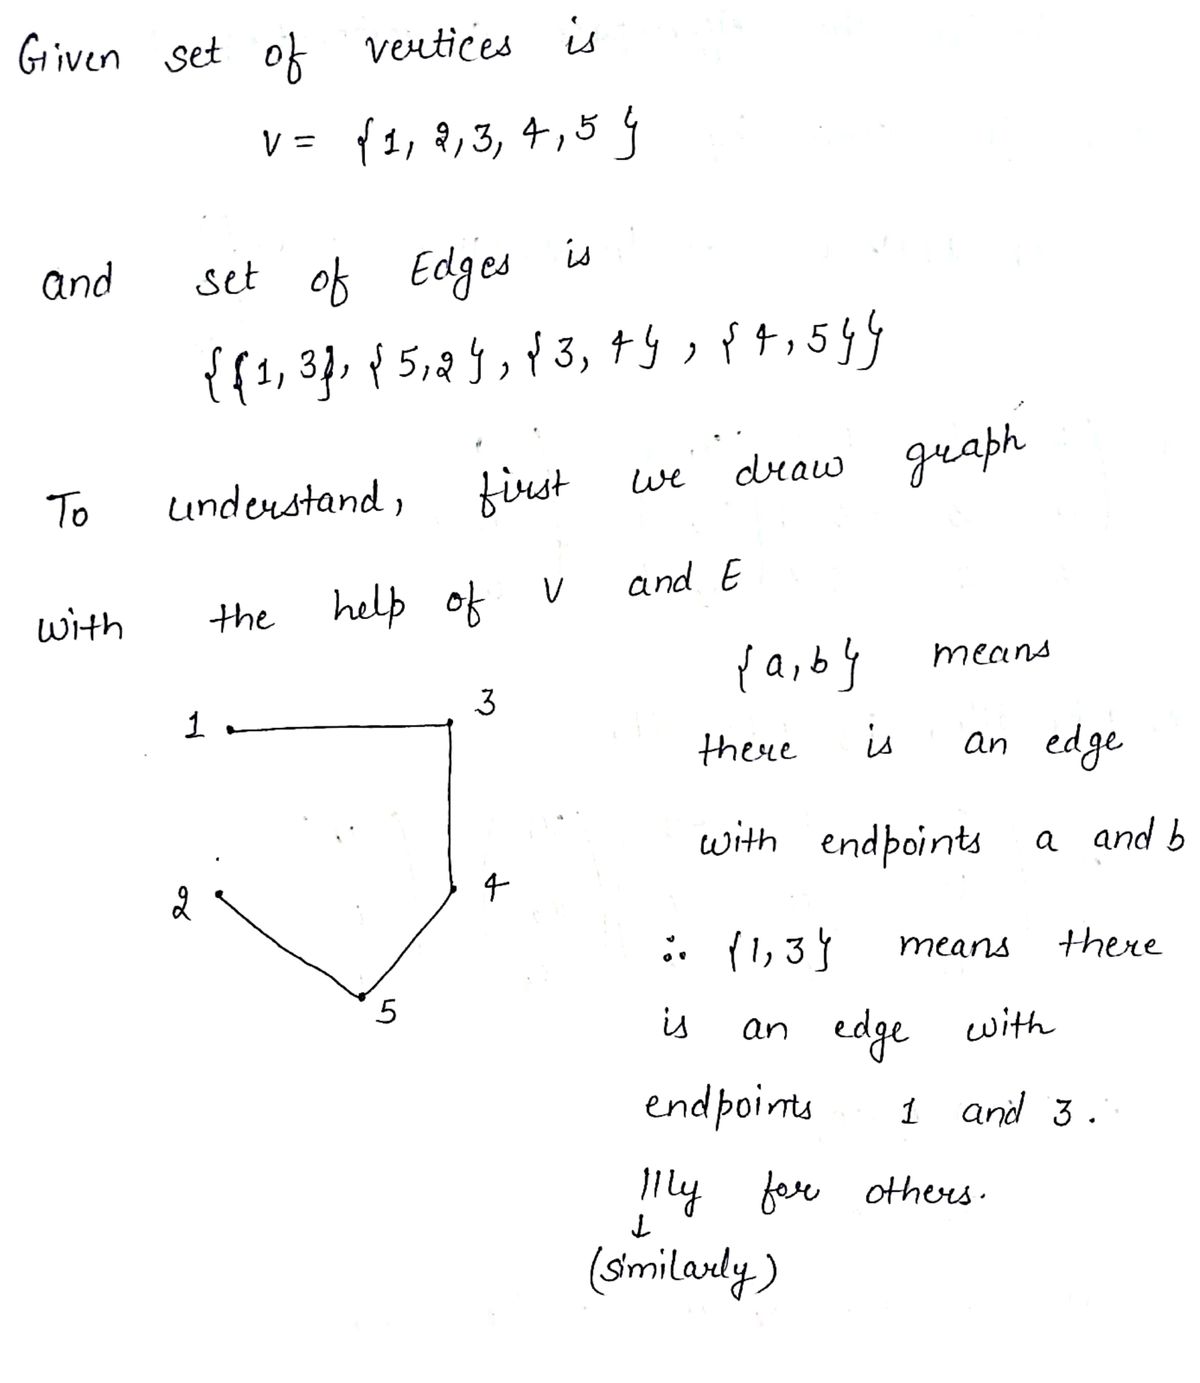 Given set of vertices is
V = {1, 2, 3, 4, 5}
and set of Edges is
{{1, 3}, {5, 2}, {3, 4}, {4, 5}}
To understand, first we draw graph
with the help of V and E
{a, b} means
there is an edge
with endpoints a and b
∴ {1, 3} means there
is an edge with
endpoints 1 and 3.
|||ly for others.
↓
(similarly)
1
3
2
4
5